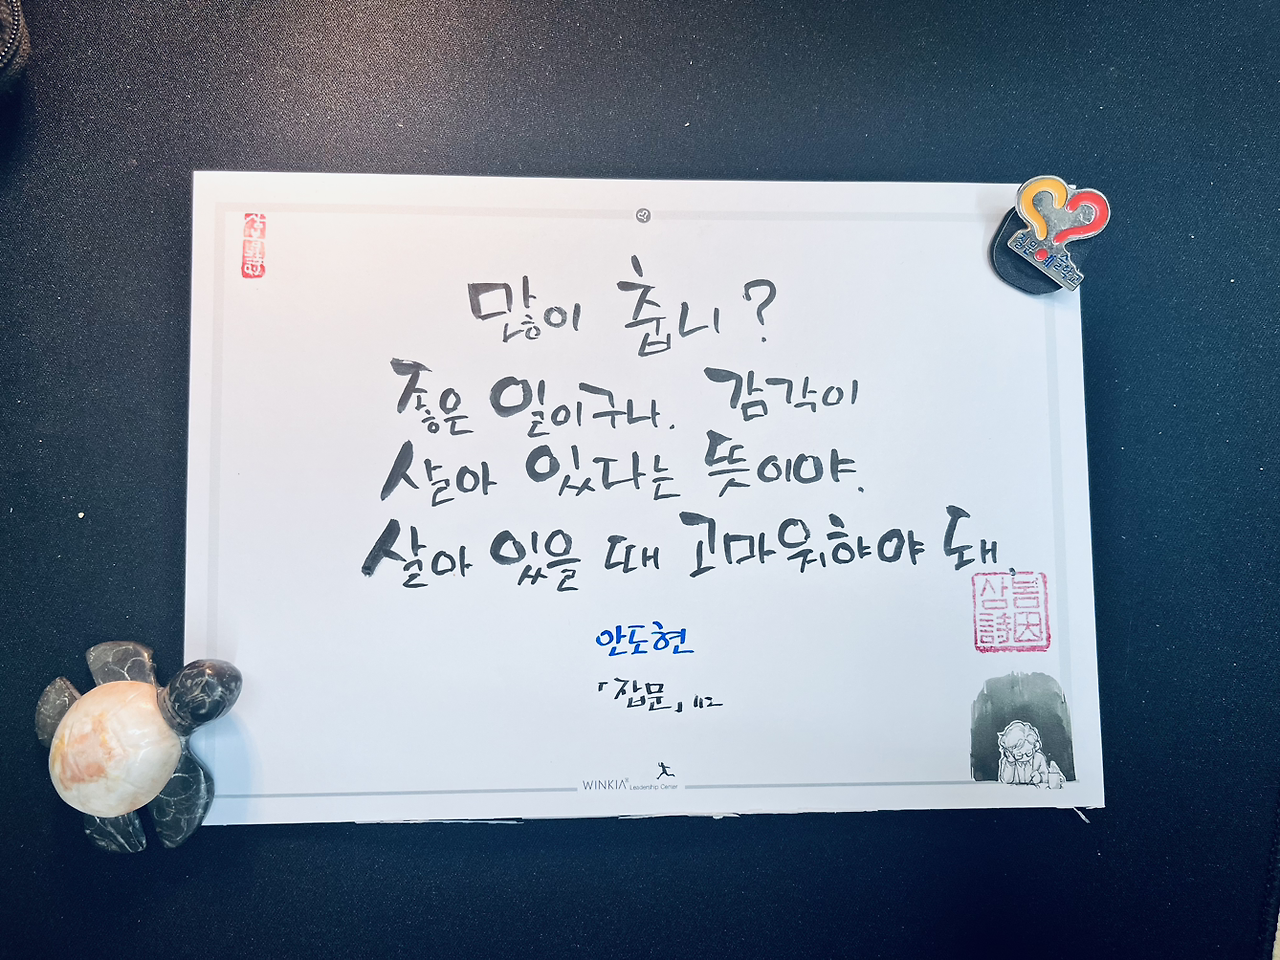 많이 춥니?
좋은 일이구나. 감각이
살아 있다는 뜻이야.
살아 있을 때 고마워하야 돼.
안도현
「잡문」 112
WINKIA® Leadership Center